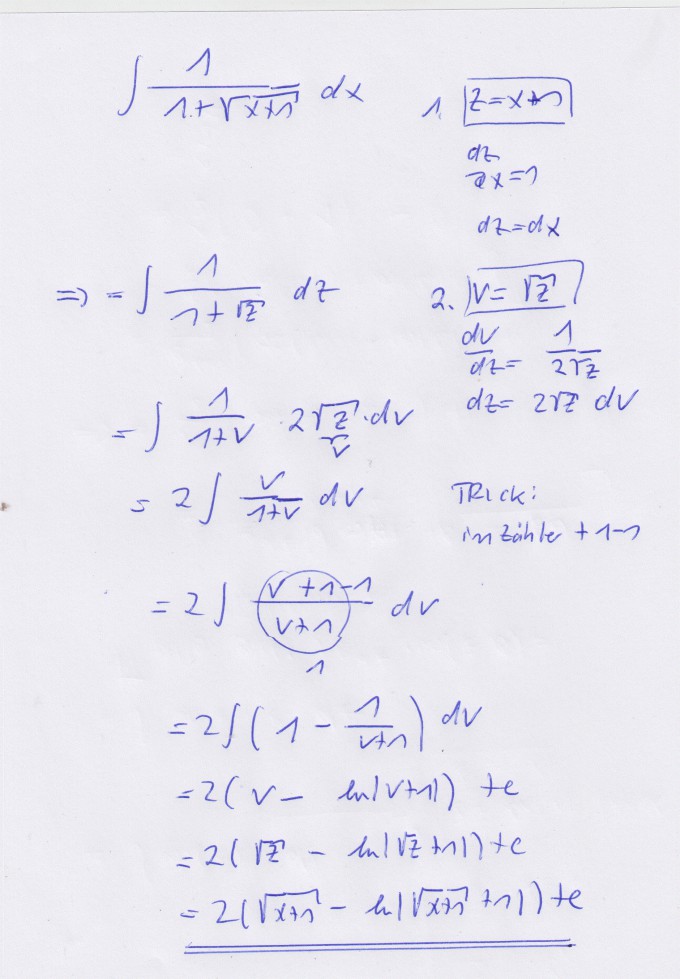 ∫ 1/(1+√(x+1)) dx
1. z=x+1
dz/dx=1
dz=dx
=> = ∫ 1/(1+√z) dz
2. v=√z
dv/dz= 1/(2√z)
dz= 2√z dv
= ∫ 1/(1+v) 2√z·dv
v
= 2∫ v/(1+v) dv
TRick:
im Zähler +1-1
= 2∫ (v+1-1)/(v+1) dv
1
=2∫(1 - 1/(v+1)) dv
=2(v- ln|v+1|) +c
=2(√z - ln|√z+1|)+c
=2(√(x+1) - ln|√(x+1) +1|)+c